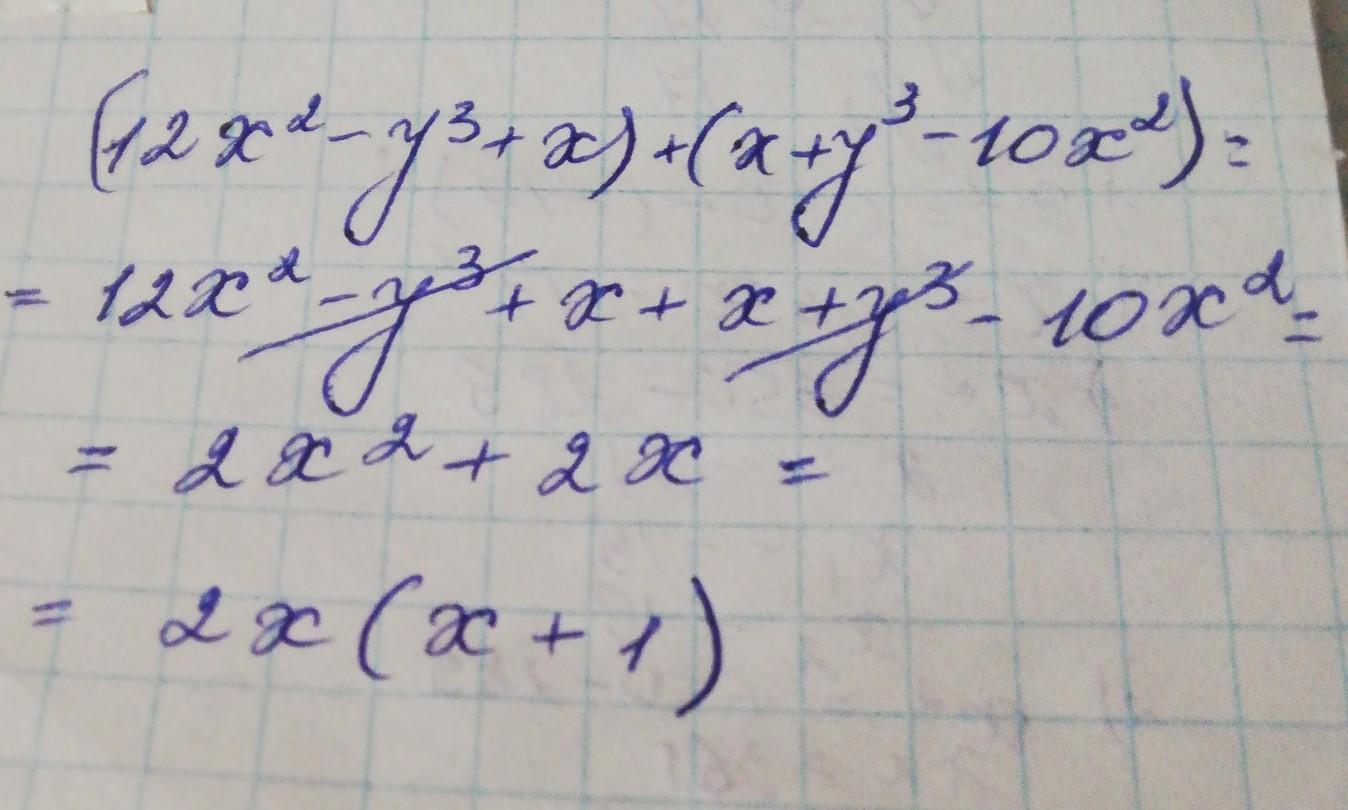 (12x² - y³ + x) + (x + y³ - 10x²) =
= 12x² - y³ + x + x + y³ - 10x² =
= 2x² + 2x =
= 2x(x + 1)